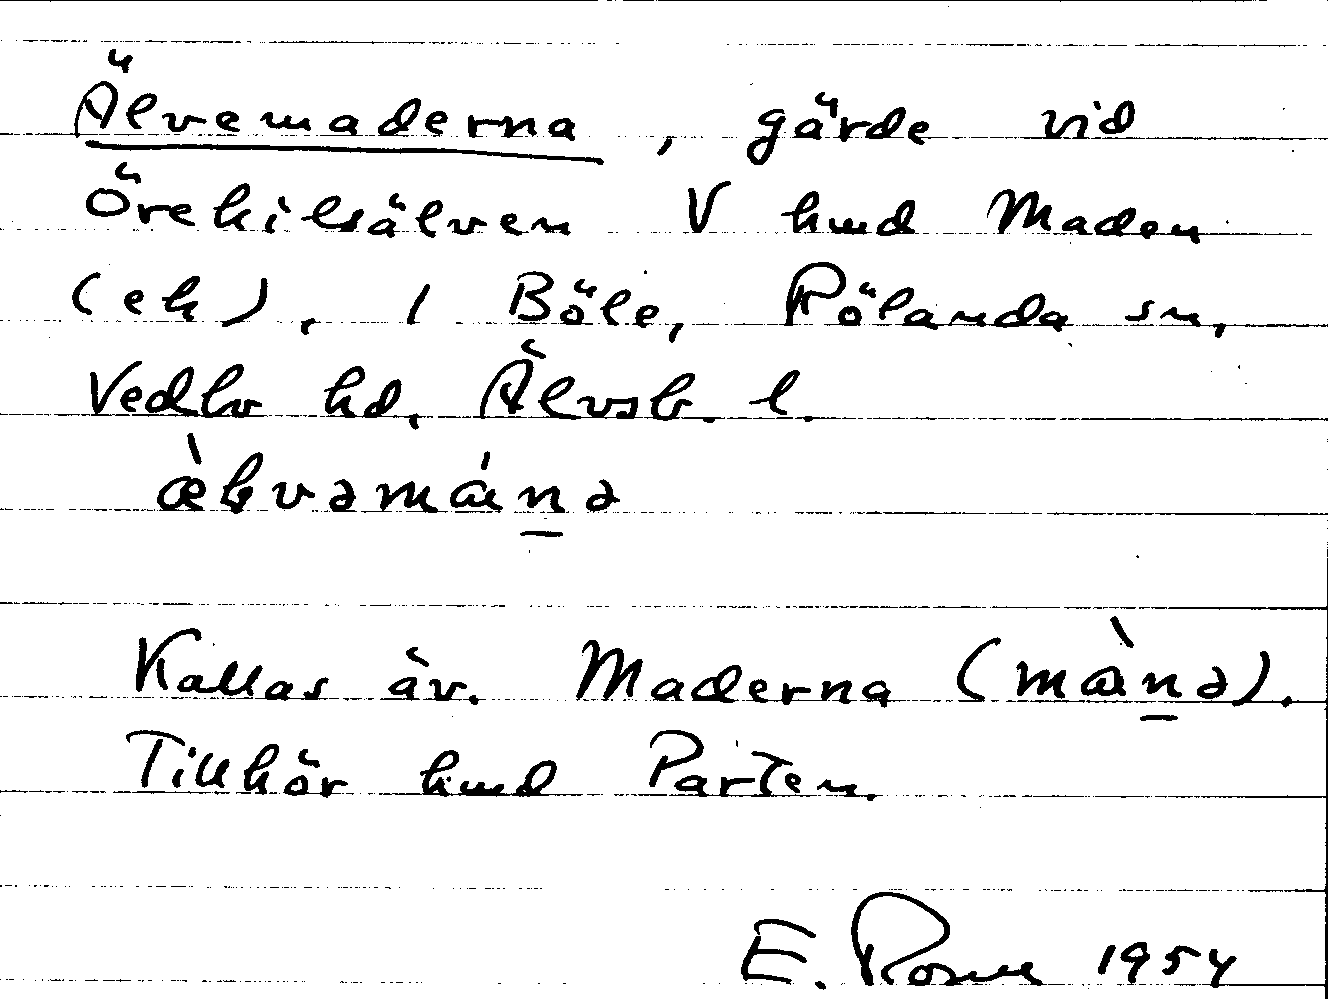 Älvemaderna, gärde vid
Örekilsälven V hmd Maden
(ek), 1 Böle, Rölanda sn,
Vedbo hd, Älvsb. l.
Kallas äv. Maderna
Tillhör hmd Parten.
E. 1954